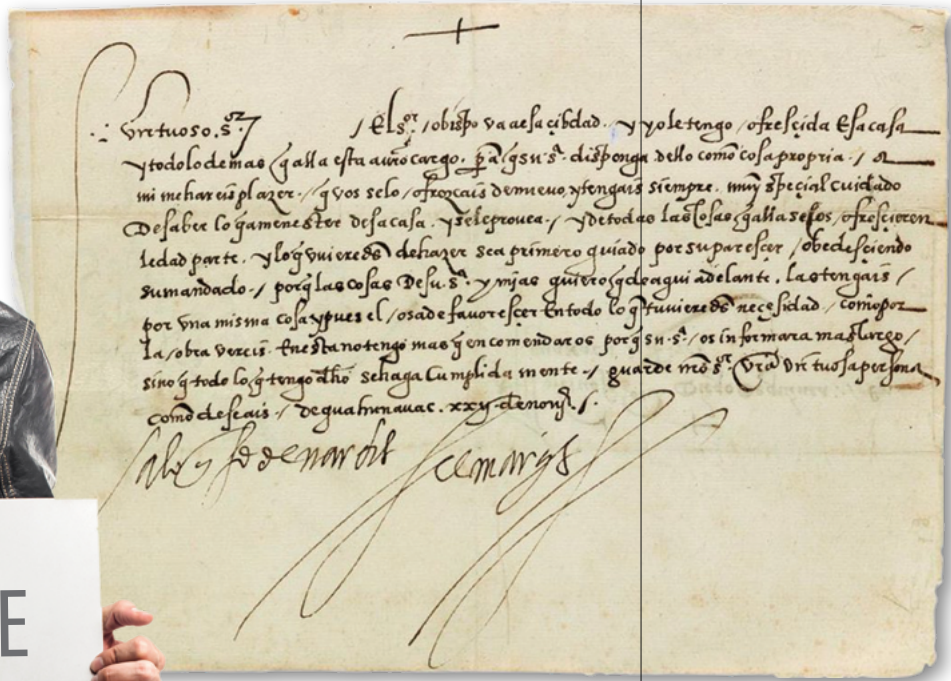 virtuoso .sor.
/ El sor / obispo va a esa çibdad . y yo le tengo / ofresçida Esa casa
y todo lo demas q alla esta a vro cargo . pa q su .sa. disponga dello como cosa propria . / a
mi me hareis plazer . / q vos se lo / ofrozcais de nuevo y tengais siempre . muy speçial cuidado
De saber lo q a menester de sa casa . y se le provea . / y de todas las cosas q alla se los / ofresçieren
le dad parte . y lo q uvieredes de hazer sea primero guiado por su paresçer / obedesçiendo
su mandado . / porq las cosas De su .sa. y mias quiero q de aqui adelante . las tengais /
por una misma cosa y pues el / os a de favoresçer En todo lo q tuvieredes neçesidad / como por
la / obra vereis . En esta no tengo mas q encomendaros porq su .sa. / os informara mas largo /
sino q todo lo q tengo dho se haga Cumplida mente . / guarde nro sor vra virtuosa persona
como deseais . / de . xxv de novie . / .
El marqs
E